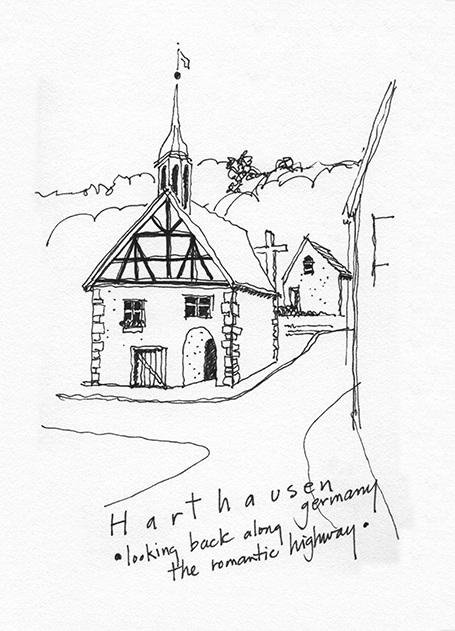 Harthausen
germany
•looking back along
the romantic highway•